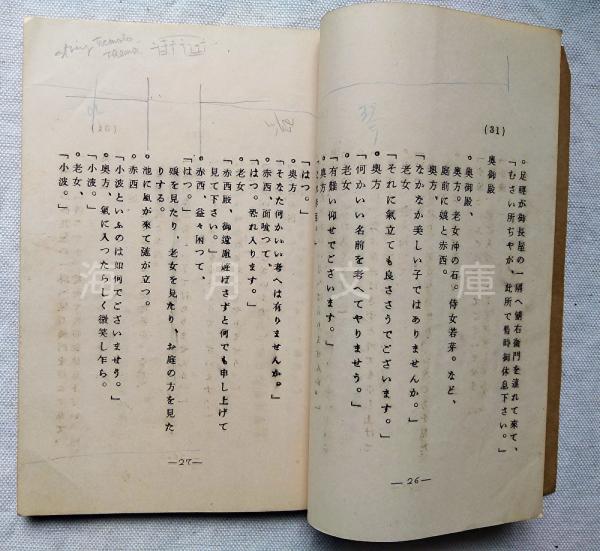 (31)
。足軽が御長屋の一隅へ鯖右衛門を連れて来て、
「むさい所ぢやが、此所で暫時御休息下さい。」
奥御殿
。奥御殿、
奥方。老女沖の石。侍女若芽。など、
庭前に娘と赤西。
「なかなか美しい子ではありませんか。」
老女
「それに気立ても良ささうでございます。」
奥方
「何かいい名前を考へてやりませう。」
老女
「有難い仰せでございます。」
奥方
—26—
「はつ。」
奥方
「そなた何かいい考へは有りませんか。」
。赤西、面喰つて、
「はつ。恐れ入ります。」
。老女
「赤西殿、御遠慮遊ばさずと何でも申し上げて
見て下さい。」
。赤西、益々困つて、
「はつ。」
娘を見たり、老女を見たり、お庭の方を見た
りする。
。池に風が来て漣が立つ。
。赤西
「小波といふのは如何でございませう。」
。奥方、気に入つたらしく微笑し乍ら。
「小波。」
。老女、
「小波。」
—27—
(26)
string Tremolo
海月文庫